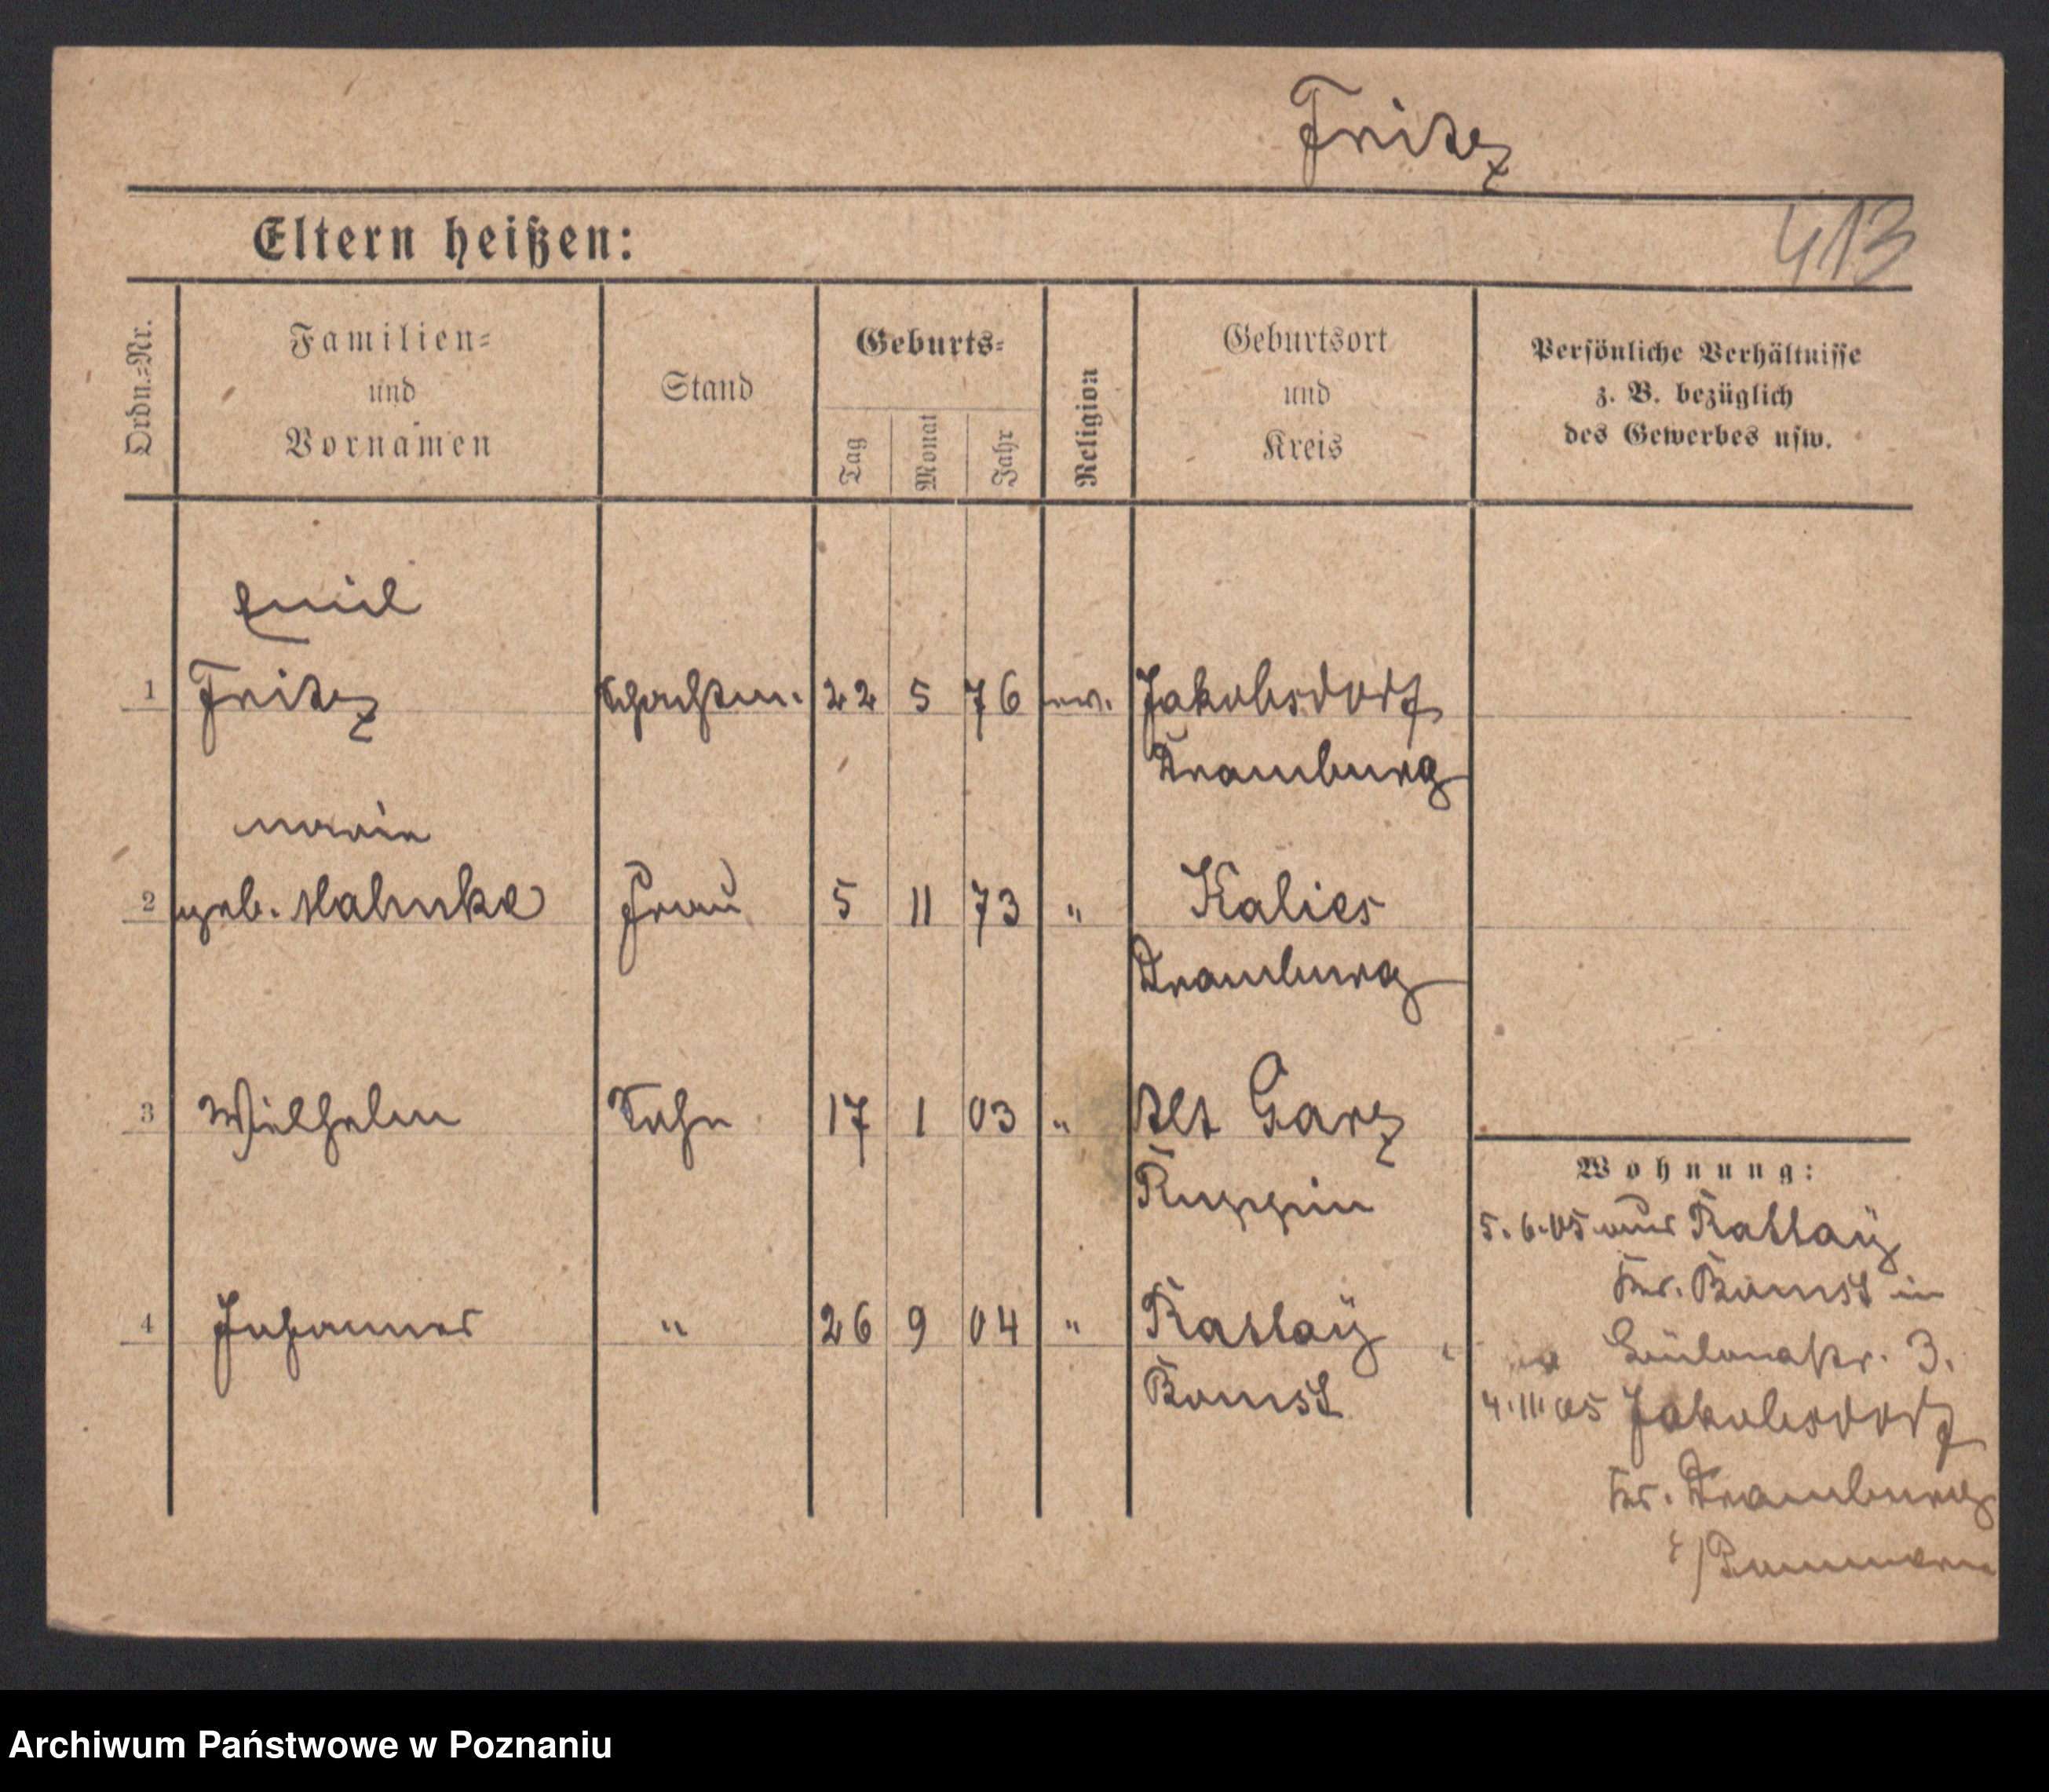 Fritz
Eltern heißen:
413
Ordn.=Nr.
Familien=
und
Vornamen
Stand
Geburts=
Tag
Monat
Jahr
Religion
Geburtsort
und
Kreis
Persönliche Verhältnisse
z. B. bezüglich
des Gewerbes usw.
Emil
1 Fritz Schachtm. 22 5 76 ev. Jakobsdorf
Dramburg
Marie
2 geb. Mahnke Frau 5 11 73 " Kalies
Dramburg
3 Wilhelm Sohn 17 1 03 " Alt Garz
Ruppin
4 Johannes " 26 9 04 "
Bomst
Wohnung:
5.6.05 aus
Kr. Bomst in
3.
4.III 05 Jakobsdorf
Kr. Dramburg
i/Pommern
Archiwum Państwowe w Poznaniu